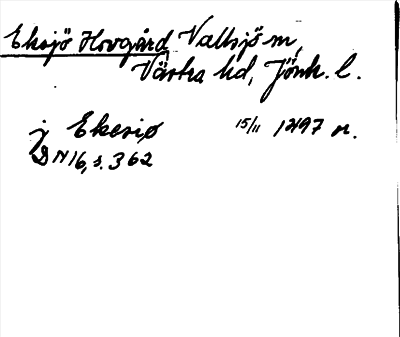 Eksjö Hovgård, Vallsjö sn,
Västra hd, Jönk. l.
j Ekesiø 15/11 1497 or.
DN 16, s. 362